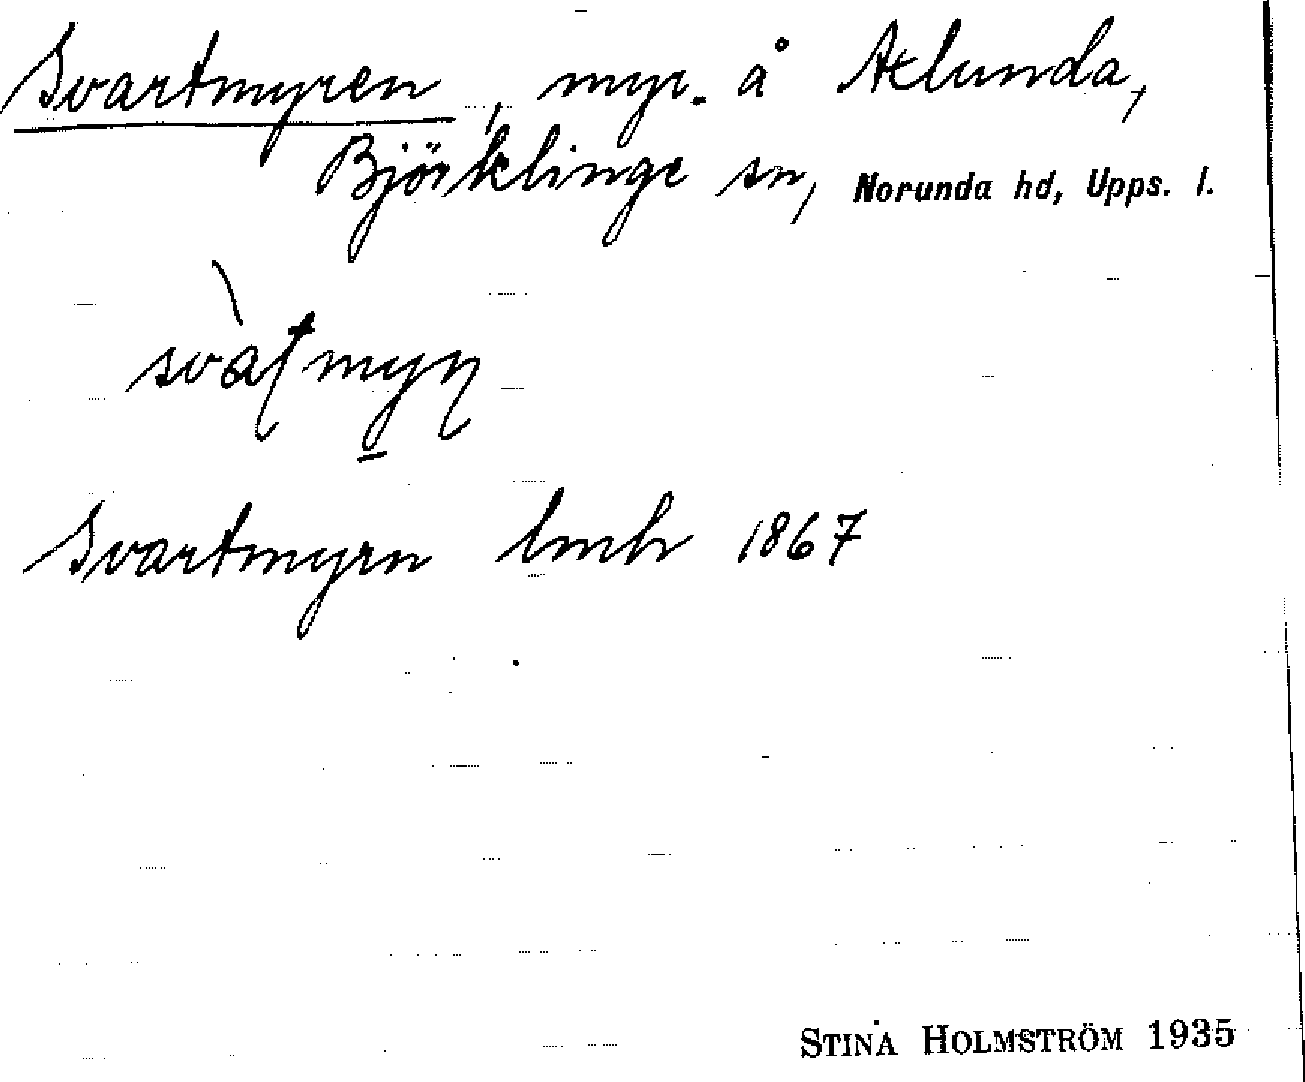 Svartmyren, myr å Axlunda,
Björklinge sn, Norunda hd, Upps. l.
Svartmyrn lmh 1867
STINA HOLMSTRÖM 1935